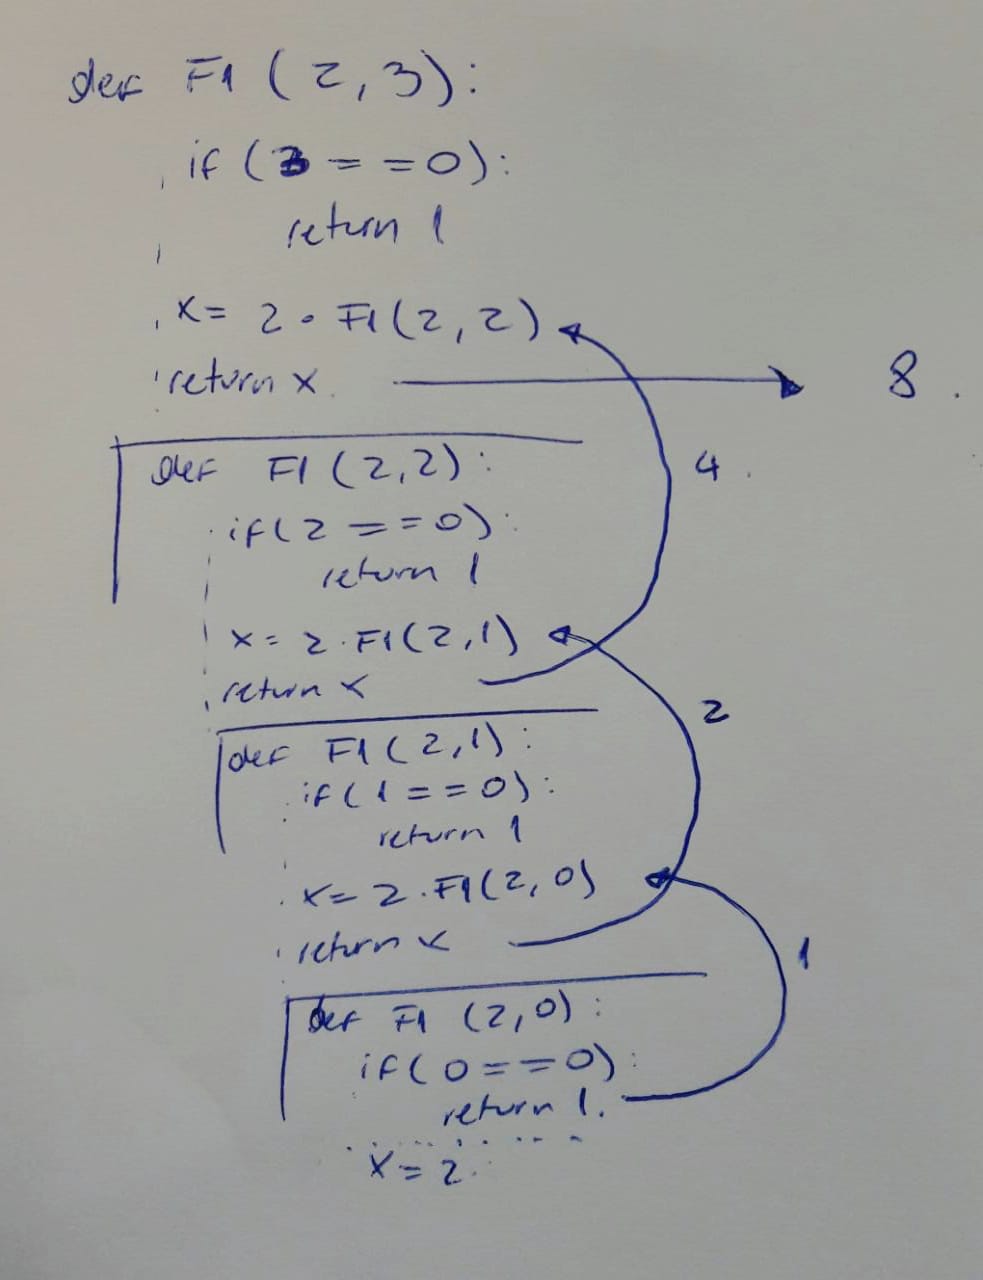 def F1 (2,3):
if (3 == 0):
return 1
x= 2 · F1(2,2)
return x 8.
def F1(2,2):
if(2 == 0):
return 1
4.
x= 2·F1(2,1)
return x
2
def F1(2,1):
if(1==0):
return 1
x= 2·F1(2,0)
return x
1
def F1 (2,0):
if(0==0):
return 1.
x=2.